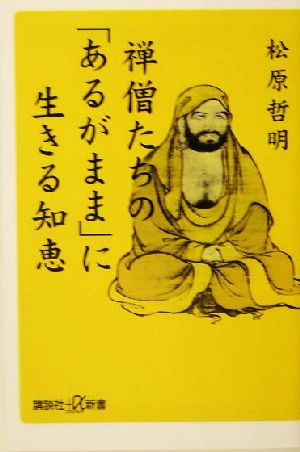 松原哲明
禅僧たちの
「あるがまま」に
生きる知恵
講談社+α新書